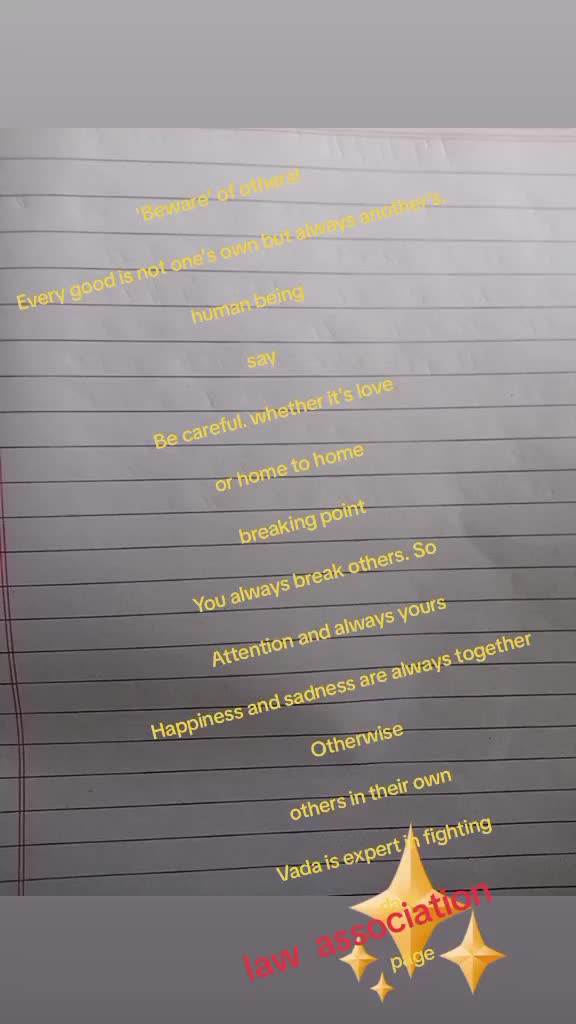 'Beware' of others!
Every good is not one's own but always another's.
human being
say
Be careful. whether it's love
or home to home
breaking point
You always break others. So
Attention and always yours
Happiness and sadness are always together
Otherwise
others in their own
Vada is expert in fighting
law association
page